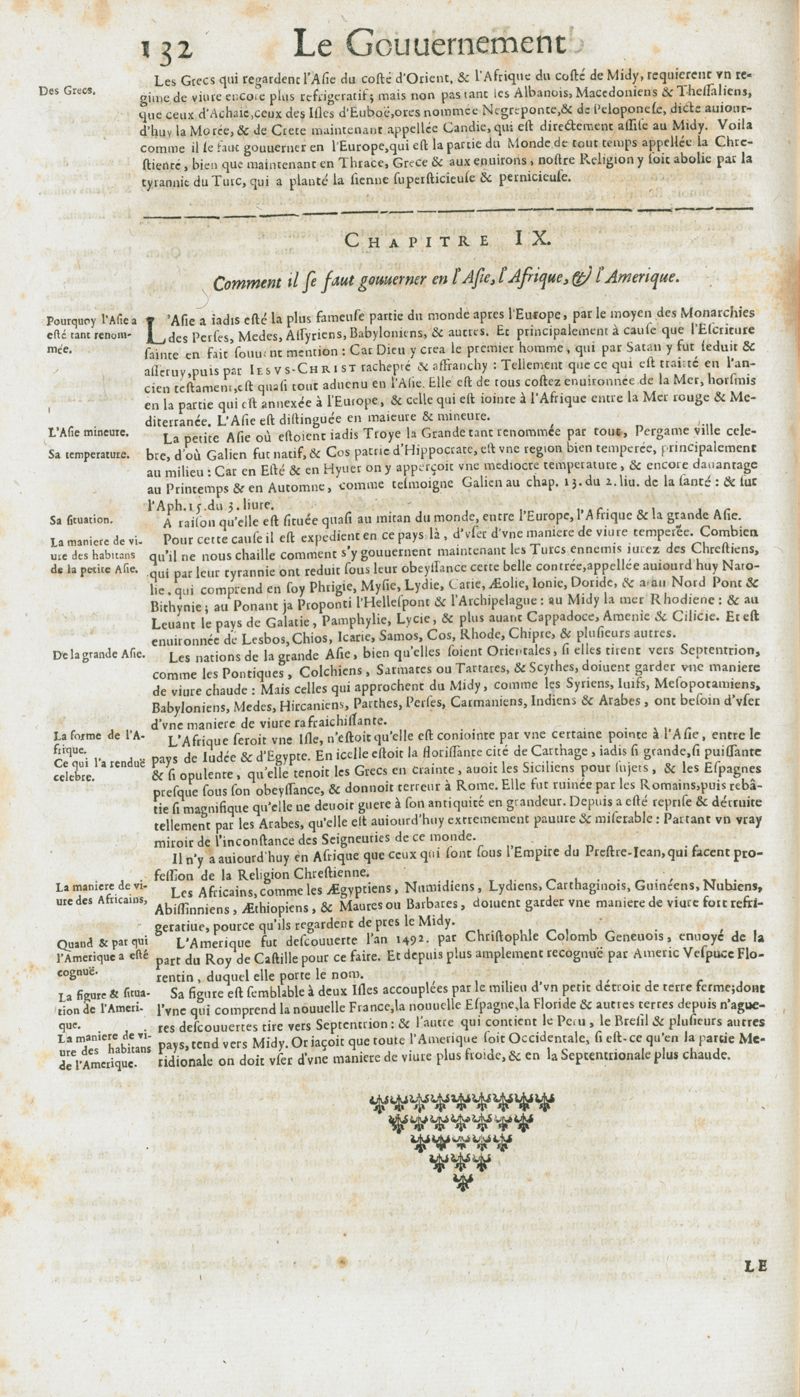 132 Le Gouuernement
Des Grecs.
Les Grecs qui regardent l'Aſie du coſté d'Orient, & l'Afrique du coſté de Midy, requierent vn re-
gime de viure encore plus refrigeratif; mais non pas tant les Albanois, Macedoniens & Theſſaliens,
que ceux d'Achaie, ceux des Iſles d'Euboë, ores nommée Negreponte, & de Peloponeſe, dicte auiour-
d'huy la Morée, & de Crete maintenant appellée Candie, qui eſt directement aſſiſe au Midy. Voila
comme il ſe faut gouuerner en l'Europe, qui eſt la partie du Monde de tout temps appellée la Chre-
ſtienté, bien que maintenant en Thrace, Grece & aux enuirons, noſtre Religion y ſoit abolie par la
tyrannie du Turc, qui a planté la ſienne ſuperſticieuſe & pernicieuſe.
CHAPITRE IX.
Comment il ſe faut gouuerner en l'Aſie, l'Afrique, & l'Amerique.
Pourquoy l'Aſie a
eſté tant renom-
mée.
L'Aſie a iadis eſté la plus fameuſe partie du monde apres l'Europe, par le moyen des Monarchies
des Perſes, Medes, Aſſyriens, Babyloniens, & autres. Et principalement à cauſe que l'Eſcriture
ſainte en fait ſouuent mention : Car Dieu y crea le premier homme, qui par Satan y fut ſeduit &
aſſeruy, puis par IESVS-CHRIST racheptè & affranchy : Tellement que ce qui eſt traitté en l'an-
cien teſtament, eſt quaſi tout aduenu en l'Aſie. Elle eſt de tous coſtez enuironnée de la Mer, horſmis
en la partie qui eſt annexée à l'Europe, & celle qui eſt iointe à l'Afrique entre la Mer rouge & Me-
diterranée. L'Aſie eſt diſtinguée en maieure & mineure.
L'Aſie mineure.
La petite Aſie où eſtoient iadis Troye la Grande tant renommée par tout, Pergame ville cele-
Sa temperature.
bre, d'où Galien fut natif, & Cos patrie d'Hippocrate, eſt vne region bien temperée, principalement
au milieu : Car en Eſté & en Hyuer on y apperçoit vne mediocre temperature, & encore dauantage
au Printemps & en Automne, comme teſmoigne Galien au chap. 13. du 2. liu. de la ſanté : & ſur
l'Aph. 15. du 3. liure.
Sa ſituation.
A raiſon qu'elle eſt ſituée quaſi au mitan du monde, entre l'Europe, l'Afrique & la grande Aſie.
La maniere de vi-
ure des habitans
de la petite Aſie.
Pour cette cauſe il eſt expedient en ce pays là, d'vſer d'vne maniere de viure temperée. Combien
qu'il ne nous chaille comment s'y gouuernent maintenant les Turcs ennemis iurez des Chreſtiens,
qui par leur tyrannie ont reduit ſous leur obeyſſance cette belle contrée, appellée auiourd huy Nato-
lie, qui comprend en ſoy Phrigie, Myſie, Lydie, Carie, Æolie, Ionie, Doride, & a au Nord Pont &
Bithynie; au Ponant ja Proponti l'Helleſpont & l'Archipelague : au Midy la mer Rhodiene : & au
Leuant le pays de Galatie, Pamphylie, Lycie, & plus auant Cappadoce, Amenie & Cilicie. Et eſt
enuironnée de Lesbos, Chios, Icarie, Samos, Cos, Rhode, Chipre, & pluſieurs autres.
De la grande Aſie.
Les nations de la grande Aſie, bien qu'elles ſoient Orientales, ſi elles tirent vers Septentrion,
comme les Pontiques, Colchiens, Sarmates ou Tartares, & Scythes, doiuent garder vne maniere
de viure chaude : Mais celles qui approchent du Midy, comme les Syriens, Iuifs, Meſopotamiens,
Babyloniens, Medes, Hircaniens, Parthes, Perſes, Carmaniens, Indiens & Arabes, ont beſoin d'vſer
d'vne maniere de viure rafraichiſſante.
La forme de l'A-
frique.
Ce qui l'a renduë
celebre.
L'Afrique ſeroit vne Iſle, n'eſtoit qu'elle eſt coniointe par vne certaine pointe à l'Aſie, entre le
pays de Iudée & d'Egypte. En icelle eſtoit la floriſſante cité de Carthage, iadis ſi grande, ſi puiſſante
& ſi opulente, qu'elle tenoit les Grecs en crainte, auoit les Siciliens pour ſujets, & les Eſpagnes
preſque ſous ſon obeyſſance, & donnoit terreur à Rome. Elle fut ruinée par les Romains, puis rebâ-
tie ſi magnifique qu'elle ne deuoit guere à ſon antiquité en grandeur. Depuis a eſté repriſe & détruite
tellement par les Arabes, qu'elle eſt auiourd'huy extremement pauure & miſerable : Partant vn vray
miroir de l'inconſtance des Seigneuries de ce monde.
Il n'y a auiourd'huy en Afrique que ceux qui ſont ſous l'Empire du Preſtre-Iean, qui facent pro-
feſſion de la Religion Chreſtienne.
La maniere de vi-
ure des Africains,
Les Africains, comme les Ægyptiens, Numidiens, Lydiens, Carthaginois, Guinéens, Nubiens,
Abiſſinniens, Æthiopiens, & Maures ou Barbares, doiuent garder vne maniere de viure fort refri-
geratiue, pource qu'ils regardent de pres le Midy.
Quand & par qui
l'Amerique a eſté
cognuë.
L'Amerique fut deſcouuerte l'an 1492. par Chriſtophle Colomb Geneuois, enuoyé de la
part du Roy de Caſtille pour ce faire. Et depuis plus amplement recognuë par Americ Veſpuce Flo-
rentin, duquel elle porte le nom.
La figure & ſitua-
tion de l'Ameri-
que.
Sa figure eſt ſemblable à deux Iſles accouplées par le milieu d'vn petit détroit de terre ferme; dont
l'vne qui comprend la nouuelle France, la nouuelle Eſpagne, la Floride & autres terres depuis n'ague-
res deſcouuertes tire vers Septentrion : & l'autre qui contient le Peru, le Breſil & pluſieurs autres
La maniere de vi-
ure des habitans
de l'Amerique.
pays, tend vers Midy. Or iaçoit que toute l'Amerique ſoit Occidentale, ſi eſt-ce qu'en la partie Me-
ridionale on doit vſer d'vne maniere de viure plus froide, & en la Septentrionale plus chaude.
LE